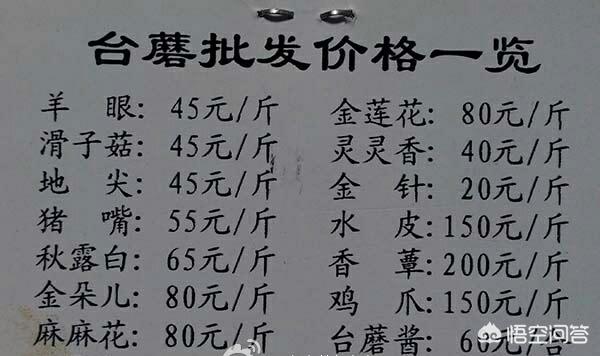 台蘑批发价格一览
羊 眼: 45元/斤 金莲花: 80元/斤
滑子菇: 45元/斤 灵灵香: 40元/斤
地 尖: 45元/斤 金 针: 20元/斤
猪 嘴: 55元/斤 水 皮: 150元/斤
秋露白: 65元/斤 香 蕈: 200元/斤
金朵儿: 80元/斤 鸡 爪: 150元/斤
麻麻花: 80元/斤 台蘑酱: 60元/
悟空问答